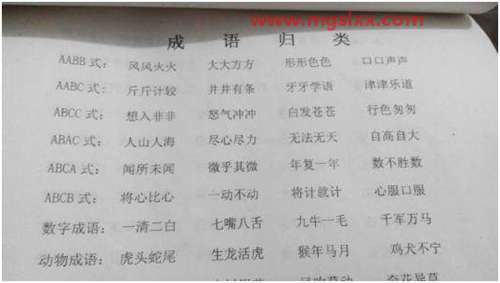 www.mgslxx.com
成语归类
AABB 式: 风风火火 大大方方 形形色色 口口声声
AABC 式: 斤斤计较 井井有条 牙牙学语 津津乐道
ABCC 式: 想入非非 怒气冲冲 白发苍苍 行色匆匆
ABAC 式: 人山人海 尽心尽力 无法无天 自高自大
ABCA 式: 闻所未闻 微乎其微 年复一年 数不胜数
ABCB 式: 将心比心 一动不动 将计就计 心服口服
数字成语: 一清二白 七嘴八舌 九牛一毛 千军万马
动物成语: 虎头蛇尾 生龙活虎 猴年马月 鸡犬不宁
奇花异草